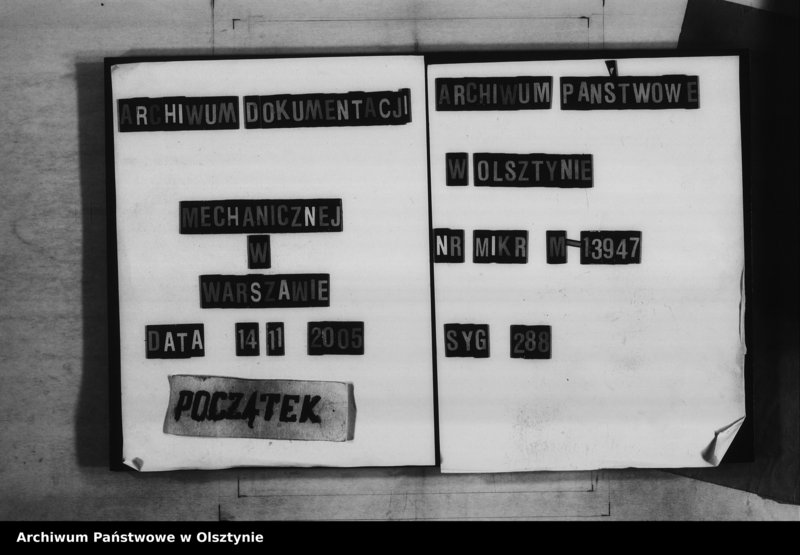 ARCHIWUM DOKUMENTACJI
MECHANICZNEJ
W
WARSZAWIE
DATA 14 11 2005
POCZĄTEK
ARCHIWUM PAŃSTWOWE
W OLSZTYNIE
NR MIKR M-13947
SYG 288
Archiwum Państwowe w Olsztynie